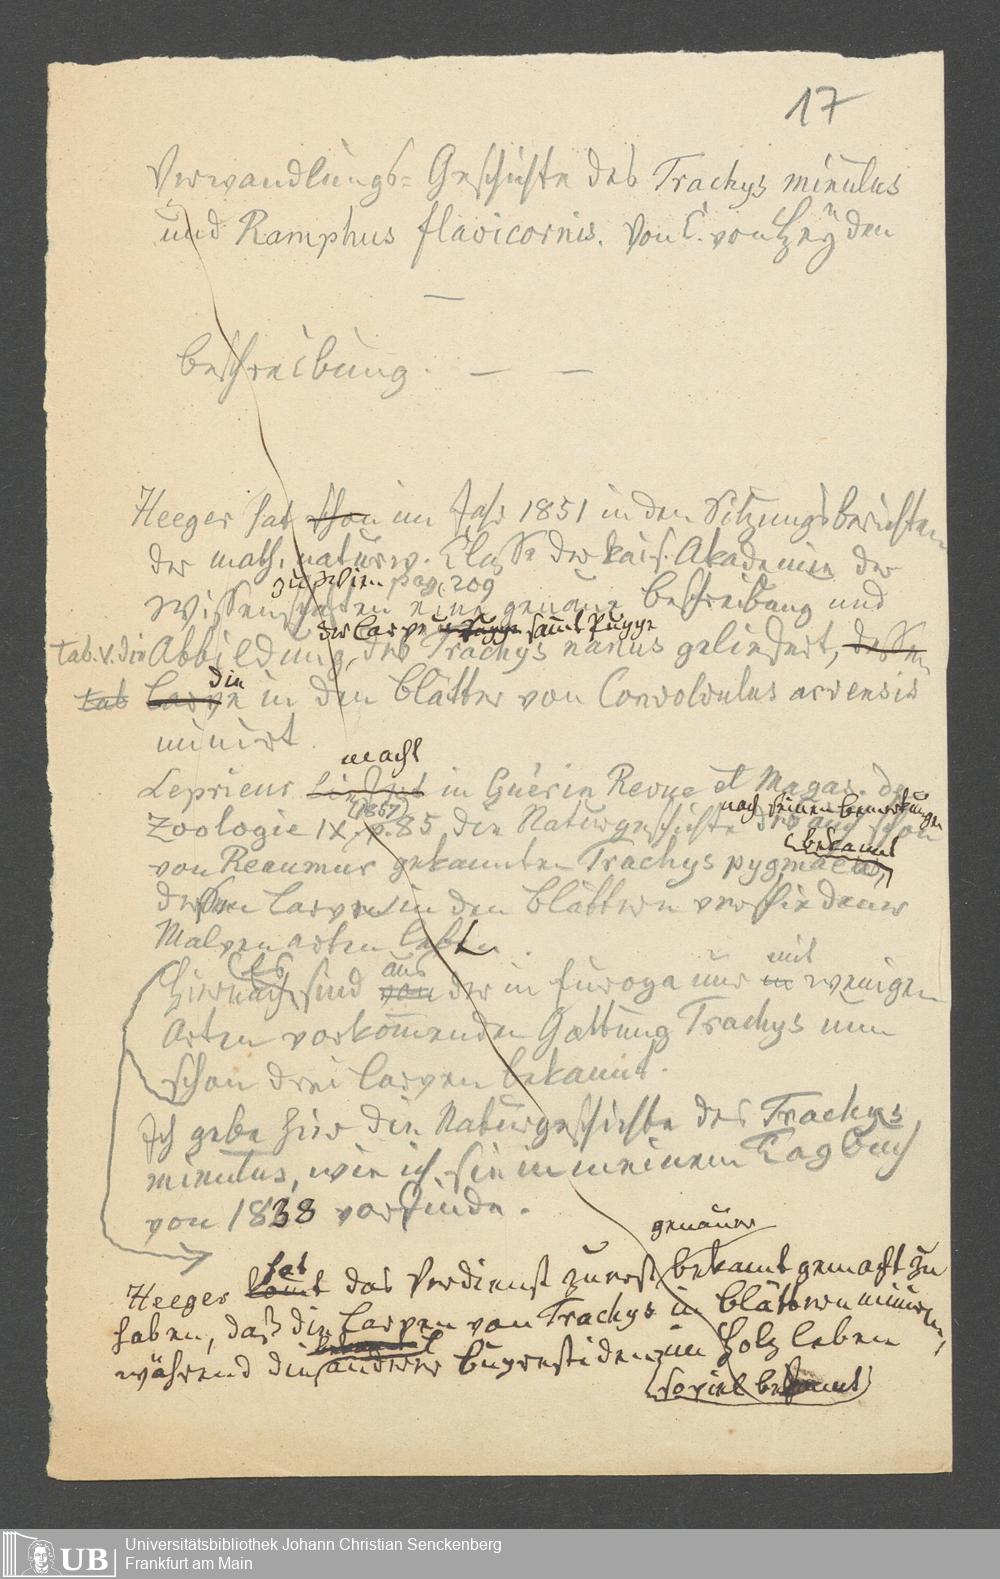 17
Verwandlungs-Geschichte des Trachys minutus
und Ramphus flavicornis. Von C. von Heyden
—
Beschreibung. — —
Heeger hat schon im Jahr 1851 in den Sitzungsberichten
der math. naturw. Classe der kais. Akademie der
zu Wien pag. 209
Wissenschaften eine genaue Beschreibung und
der Larve u. Puppe samt Puppe
tab. V. die Abbildung, des Trachys nanus geliefert, dessen
die
tab Larve in den Blätter von Convolvulus arvensis
minirt.
macht
Leprieur liefert in Guérin Revue et Magas. de
(1857) nach seinen Bemerkungen
Zoologie IX, p. 85 die Naturgeschichte des auch schon
bekannt
von Reaumur gekannten Trachys pygmaeus,
dessen Larven in den Blättern verschiedener
Malvenarten leben.
Es aus mit
Hiernach sind von der in Europa nur in wenigen
Arten vorkommenden Gattung Trachys nun
schon drei Larven bekannt.
Ich gebe hier die Naturgeschichte des Trachys
minutus, wie ich sie in meinem Tagbuch
von 1838 vorfinde.
genauer
hat
Heeger kommt das Verdienst zuerst bekannt gemacht zu
haben, daß die Larven von Trachys in Blättern miniren,
während die anderer Buprestiden im Holz leben
(soviel bekannt)
Universitätsbibliothek Johann Christian Senckenberg
Frankfurt am Main
UB